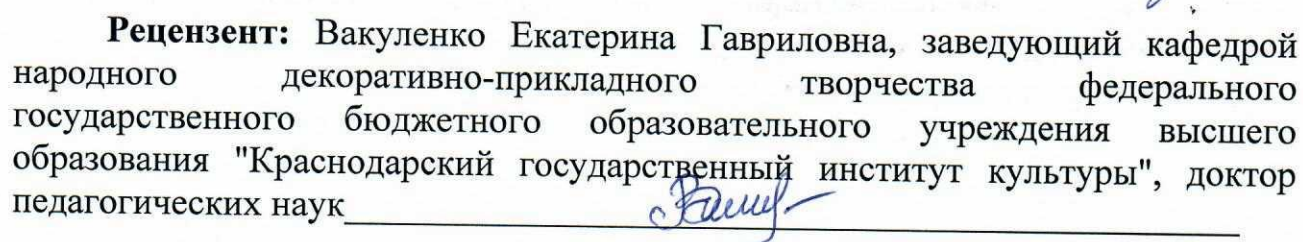 Рецензент: Вакуленко Екатерина Гавриловна, заведующий кафедрой
народного декоративно-прикладного творчества федерального
государственного бюджетного образовательного учреждения высшего
образования "Краснодарский государственный институт культуры", доктор
педагогических наук